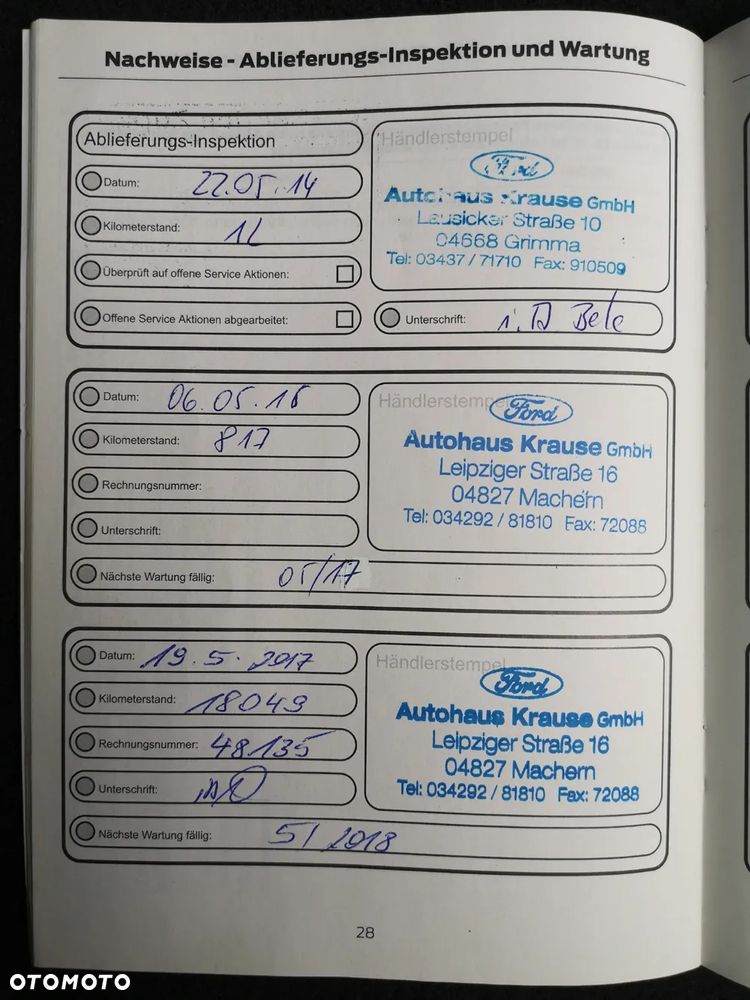 Nachweise - Ablieferungs-Inspektion und Wartung
Ablieferungs-Inspektion
Datum: 22.05.14
Kilometerstand:
Überprüft auf offene Service Aktionen:
Offene Service Aktionen abgearbeitet:
Händlerstempel
Ford
Autohaus Krause GmbH
Lausicker Straße 10
04668 Grimma
Tel: 03437/71710 Fax: 910509
Unterschrift: i.A
Datum: 06.05.16
Kilometerstand: 817
Rechnungsnummer:
Unterschrift:
Händlerstempel
Ford
Autohaus Krause GmbH
Leipziger Straße 16
04827 Machern
Tel: 034292 / 81810 Fax: 72088
Nächste Wartung fällig: 05/17
Datum: 19.5.2017
Kilometerstand: 18049
Rechnungsnummer: 48135
Unterschrift:
Händlerstempel
Ford
Autohaus Krause GmbH
Leipziger Straße 16
04827 Machern
Tel: 034292 / 81810 Fax: 72088
Nächste Wartung fällig: 5/2018
28
OTOMOTO